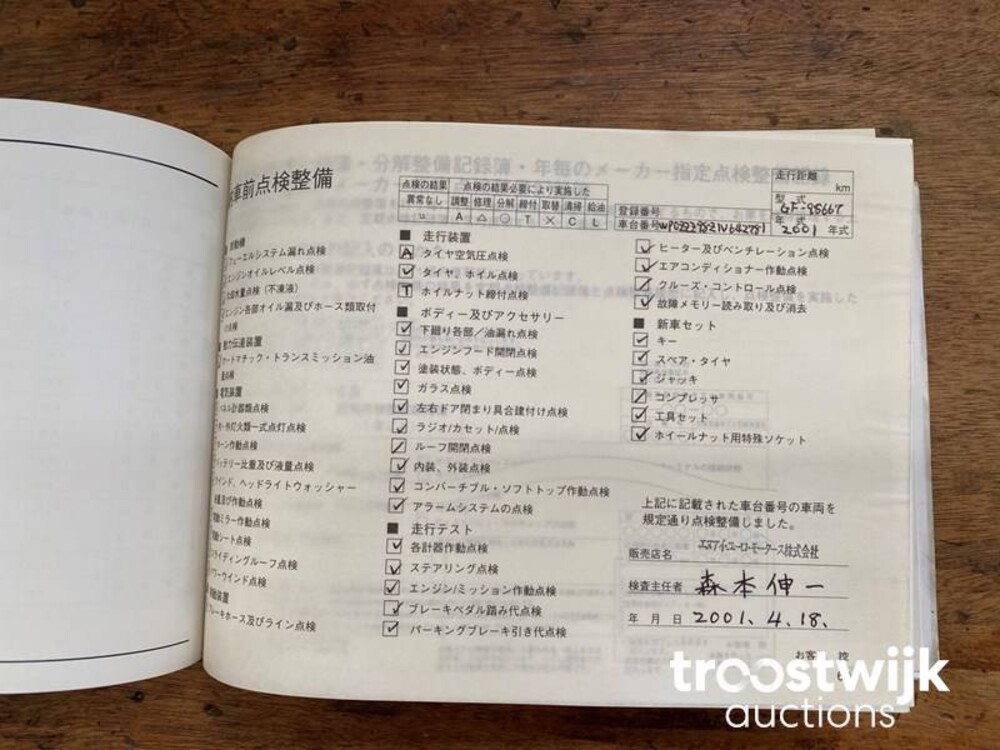 車前点検整備
点検の結果
点検の結果必要により実施した
異常なし 調整 修理 分解 締付 取替 清掃 給油
A △ T × C L
走行距離
km
型 式
GF-98667
登録番号
年 式 2001 年式
車台番号
フューエルシステム漏れ点検
エンジンオイルレベル点検
却水量点検(不凍液)
エンジン各部オイル漏及びホース類取付
の点検
動力伝達装置
オートマチック・トランスミッション油
量点検
電気装置
パネル計器類点検
外灯火類一式点灯点検
ホーン作動点検
バッテリー比重及び液量点検
ウインド、ヘッドライトウォッシャー
液量及び作動点検
電動ミラー作動点検
電動シート点検
スライディングルーフ点検
パワーウインド点検
制動装置
ブレーキホース及びライン点検
■ 走行装置
A タイヤ空気圧点検
タイヤ、ホイル点検
T ホイルナット締付点検
■ ボディー及びアクセサリー
下廻り各部/油漏れ点検
エンジンフード開閉点検
塗装状態、ボディー点検
ガラス点検
左右ドア閉まり具合建付け点検
ラジオ/カセット/点検
ルーフ開閉点検
内装、外装点検
コンバーチブル・ソフトトップ作動点検
アラームシステムの点検
■ 走行テスト
各計器作動点検
ステアリング点検
エンジン/ミッション作動点検
ブレーキペダル踏み代点検
パーキングブレーキ引き代点検
ヒーター及びベンチレーション点検
エアコンディショナー作動点検
クルーズ・コントロール点検
故障メモリー読み取り及び消去
■ 新車セット
キー
スペア・タイヤ
ジャッキ
コンプレッサ
工具セット
ホイールナット用特殊ソケット
上記に記載された車台番号の車両を
規定通り点検整備しました。
販売店名 エヌアイ・ユーロ・モータース株式会社
検査主任者 森本伸一
年 月 日 2001. 4. 18.
お客 控
troostwijk
auctions